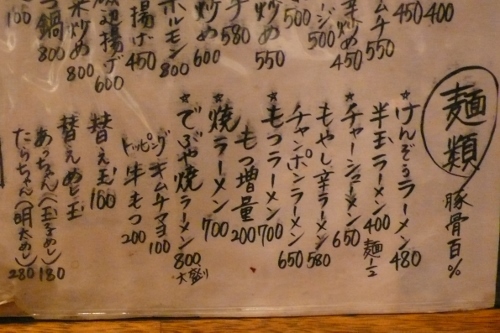 450
400
キムチ
550
辛炒め
450
500
500
炒め
550
580
炒め
600
ホルモン
800
揚げ
450
揚げ
600
炒め
800
鍋
800
100
麺類
豚骨百%
☆けんぞうラーメン 480
半玉ラーメン 400
☆チャーシューメン 650
もやし辛ラーメン 580
チャンポンラーメン 650
☆もつラーメン 700
もつ増量 200
☆焼ラーメン 700
☆でぶや焼ラーメン 800
大盛り
トッピング
キムチマヨ 100
牛もつ 200
替え玉 100
替えめし玉
あっちゃん(玉子めし) 180
たらちゃん(明太めし) 280